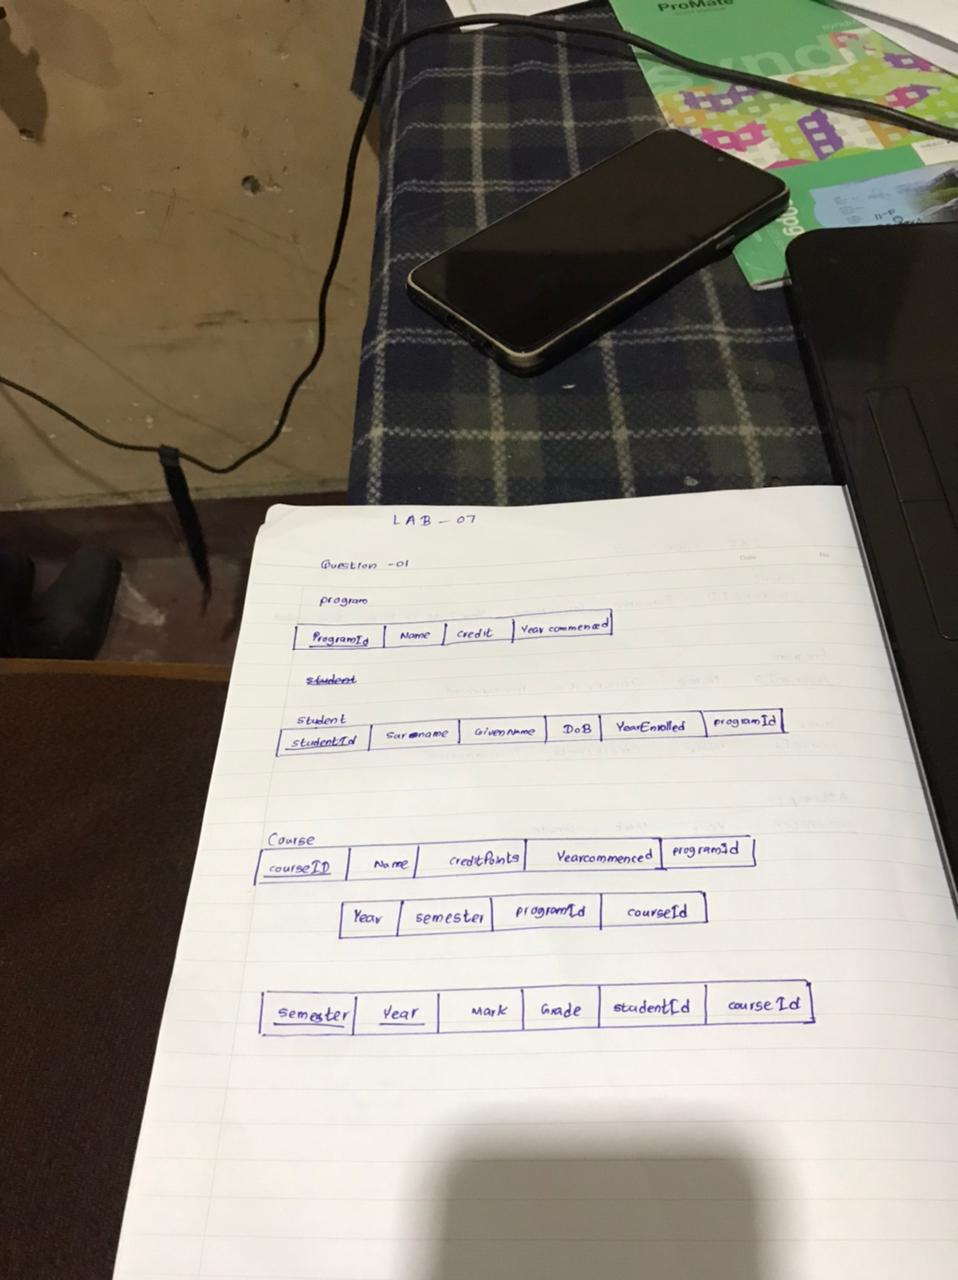 ProMate
syndi
LAB - 07
Date
No
Question - 01
program
ProgramId Name Credit Year commenced
student
student
studentId Surname GivenName DoB YearEnrolled programId
Course
courseID Name CreditPoints Yearcommenced programId
Year semester programId courseId
semester Year Mark Grade studentId courseId